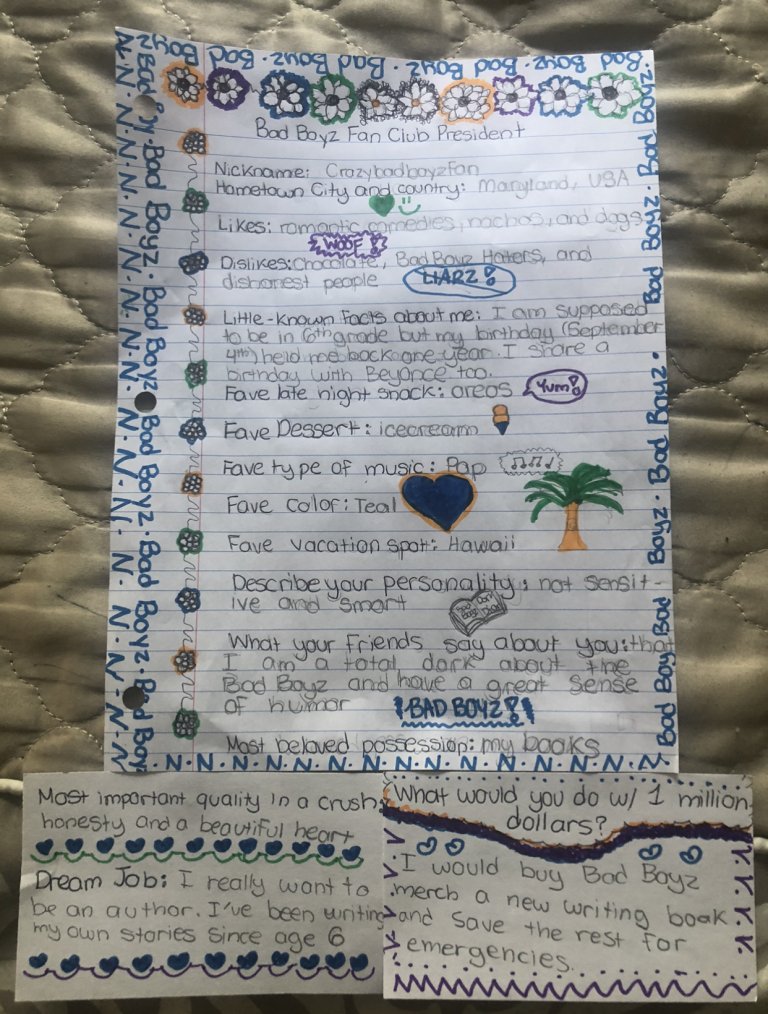 Boyz Bad · Boyz Bad Boyz · Bad Boyz · Bad Boyz · Bad Boyz
Bad Boyz Fan Club President
Nickname: Crazybadboyzfan
Hometown City and country: Maryland, USA
Likes: romantic comedies, nachos, and dogs
WOOF!
Dislikes: Chocolate, Bad Boyz Haters, and
dishonest people LIARZ!
Little-known Facts about me: I am supposed
to be in 6th grade but my birthday (September
4th) held me back one year. I share a
birthday with Beyonce too.
Fave late night snack: oreos Yum!
Fave Dessert: icecream
Fave type of music: Pop
Fave color: Teal
Fave vacation spot: Hawaii
Describe your personality: not sensit-
ive and smart
What your friends say about you: that
I am a total dork about the
Bad Boyz and have a great sense
of humor BAD BOYZ!
Most beloved possession: my books
N·N·N·N·N·N·N·N·N·N·N·N·N·N·N
Bad Boyz · Bad Boyz · Bad Boyz · Bad Boyz · Bad Boyz
Bad Boyz · Bad Boyz · Bad Boyz · Bad Boyz · Bad Boyz
Most important quality in a crush:
honesty and a beautiful heart
Dream Job: I really want to
be an author. I've been writing
my own stories since age 6
What would you do w/ 1 million
dollars?
I would buy Bad Boyz
merch a new writing book
and save the rest for
emergencies.